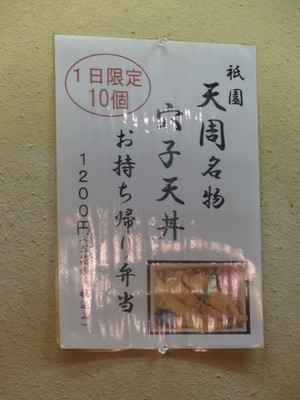 祇園
天周名物
穴子天丼
お持ち帰り弁当
1200円
1日限定
10個